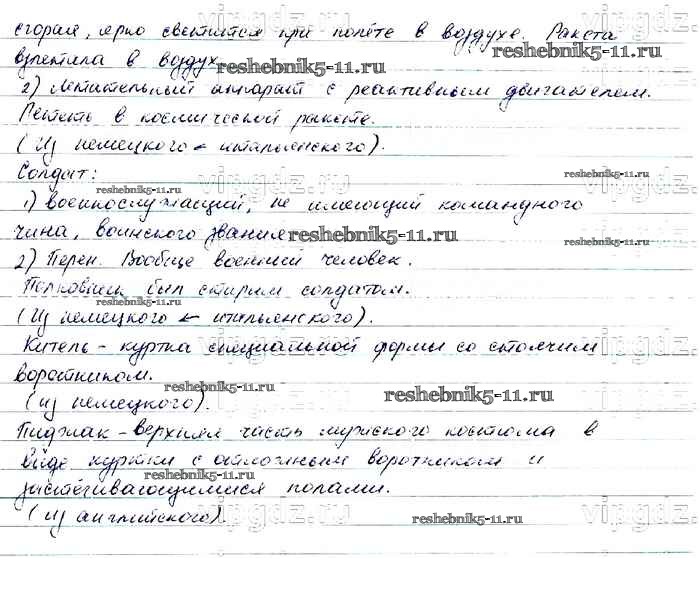 сгорая, ярко светится при полёте в воздухе. Ракета
взлетила в воздух.
2) Летительный аппарат с реактивным двигателем.
Лететь в космической ракете.
(Из немецкого ← итальянского).
Солдат:
1) военнослужащий, не имеющий командного
чина, воинского звания.
2) Перен. Вообще военный человек.
Полковник был старым солдатом.
(Из немецкого ← итальянского).
Китель - куртка специальной формы со стоячим
воротником.
(из немецкого).
Пиджак - верхняя часть мужского костюма в
виде куртки с отложным воротником и
застёгивающимися полами.
(из английского)